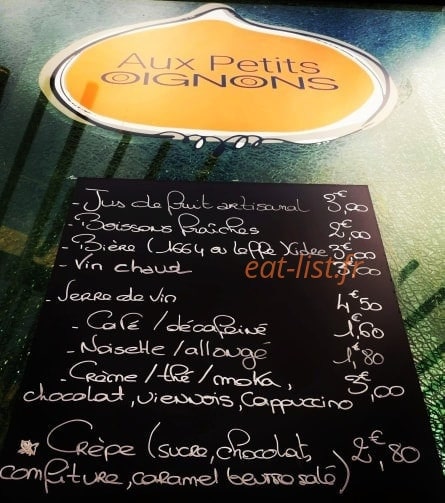 Aux Petits
OIGNONS
- Jus de fruit artisanal 3€,00
- Boissons fraîches 2€,00
- Bière (1664 ou leffe 3€,00
- Vin chaud 3€,00
eat-list.fr
- Verre de vin 4€50
- Café / décaféiné 1€,60
- Noisette / allongé 1€,80
- Crème / thé / moka, 3€,00
chocolat, viennois, Cappuccino
Crèpe (sucre, chocolat, 2€,80
confiture, caramel beurre salé)